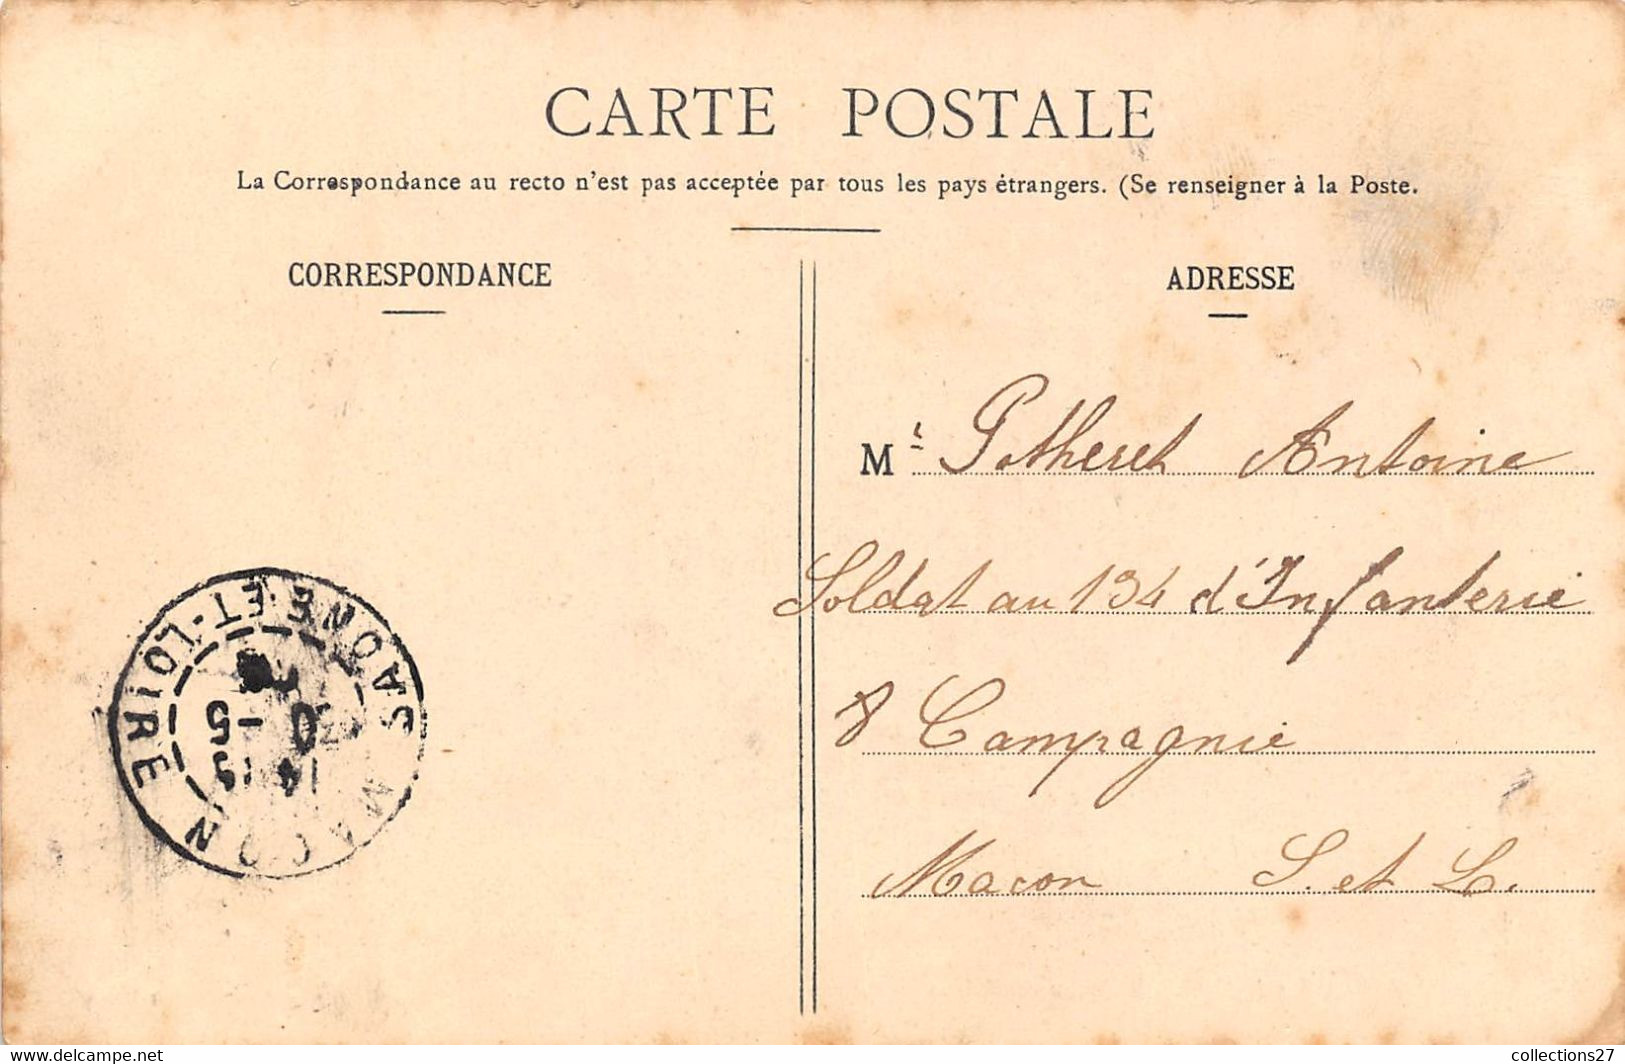 CARTE POSTALE
La Correspondance au recto n'est pas acceptée par tous les pays étrangers. (Se renseigner à la Poste.
CORRESPONDANCE
ADRESSE
Mr Potheret Antoine
Soldat au 134 d'Infanterie
8 Compagnie
Macon S. et L.
MACON
SAONE-ET-LOIRE
www.delcampe.net
collections27